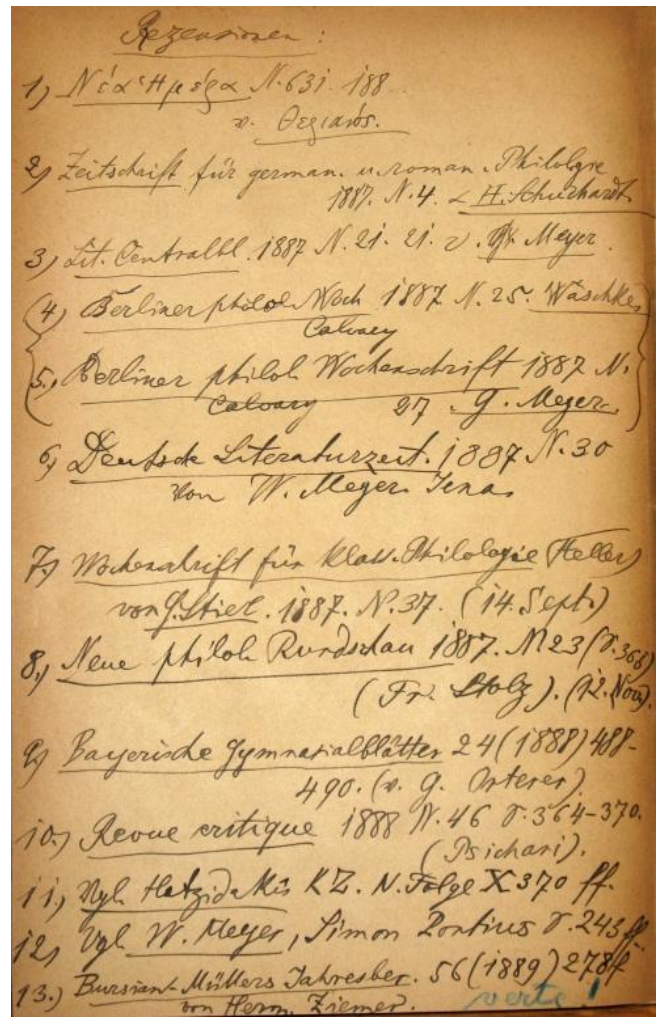 Rezensionen :
1) Νέα Ἡμέρα N. 631. 188
v. Θερειανός.
2) Zeitschrift für german. u. roman. Philologie
1887. N. 4. H. Schuchardt
3) Lit. Centralbl. 1887 N. 21. 21. v. G. Meyer.
(4) Berliner philol. Woch 1887 N. 25. Wäschke)
Calvary
5.) Berliner philol. Wochenschrift 1887 N.
Calvary 27. G. Meyer.
6) Deutsche Literaturzeit. 1887 N. 30
von W. Meyer. Jena.
7.) Wochenschrift für klass. Philologie (Heller)
von G. Stier. 1887. N. 37. (14. Sept.)
8.) Neue philol. Rundschau 1887. N 23 (S. 366)
(Fr. Stolz). (12. Nov.)
9) Bayerische Gymnasialblätter 24 (1888) 488-
490. (v. G. Orterer).
10.) Revue critique 1888 N. 46 S. 364-370.
(Psichari).
11.) Vgl. Hatzidakis KZ. N. Folge X 370 ff.
12) Vgl. W. Meyer, Simon Portius S. 243 ff.
13.) Bursian-Müllers Jahresber. 56 (1889) 278 f
von Herm. Ziemer. verte!